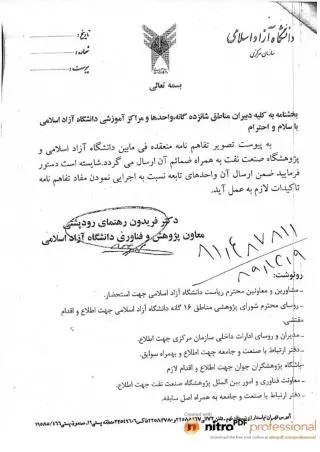 دانشگاه آزاد اسلامی
سازمان مرکزی
تاریخ:
شماره:
پیوست:
بسمه تعالی
بخشنامه به کلیه دبیران مناطق شانزده گانه،واحدها و مراکز آموزشی دانشگاه آزاد اسلامی
با سلام و احترام
به پیوست تصویر تفاهم نامه منعقده فی مابین دانشگاه آزاد اسلامی و
پژوهشگاه صنعت نفت به همراه ضمائم آن ارسال می گردد.شایسته است دستور
فرمایید ضمن ارسال آن واحدهای تابعه نسبت به اجرایی نمودن مفاد تفاهم نامه
تاکیدات لازم به عمل آید.
دکتر فریدون رهنمای رودپشتی
معاون پژوهش و فناوری دانشگاه آزاد اسلامی
رونوشت:
- مشاورین و معاونین محترم ریاست دانشگاه آزاد اسلامی جهت استحضار.
- روسای محترم شورای پژوهشی مناطق ۱۶ گانه دانشگاه آزاد اسلامی جهت اطلاع و اقدام
مقتضی.
- مدیران و روسای ادارات داخلی سازمان مرکزی جهت اطلاع.
- دفتر ارتباط با صنعت و جامعه جهت اطلاع و بهمراه سوابق.
- باشگاه پژوهشگران جوان جهت اطلاع و اقدام لازم
- معاونت فناوری و امور بین الملل پژوهشگاه صنعت نفت جهت اطلاع
- دفتر ارتباط با صنعت و جامعه به همراه اصل سابقه.
Created with
nitro PDF professional
download the free trial online at nitropdf.com/professional